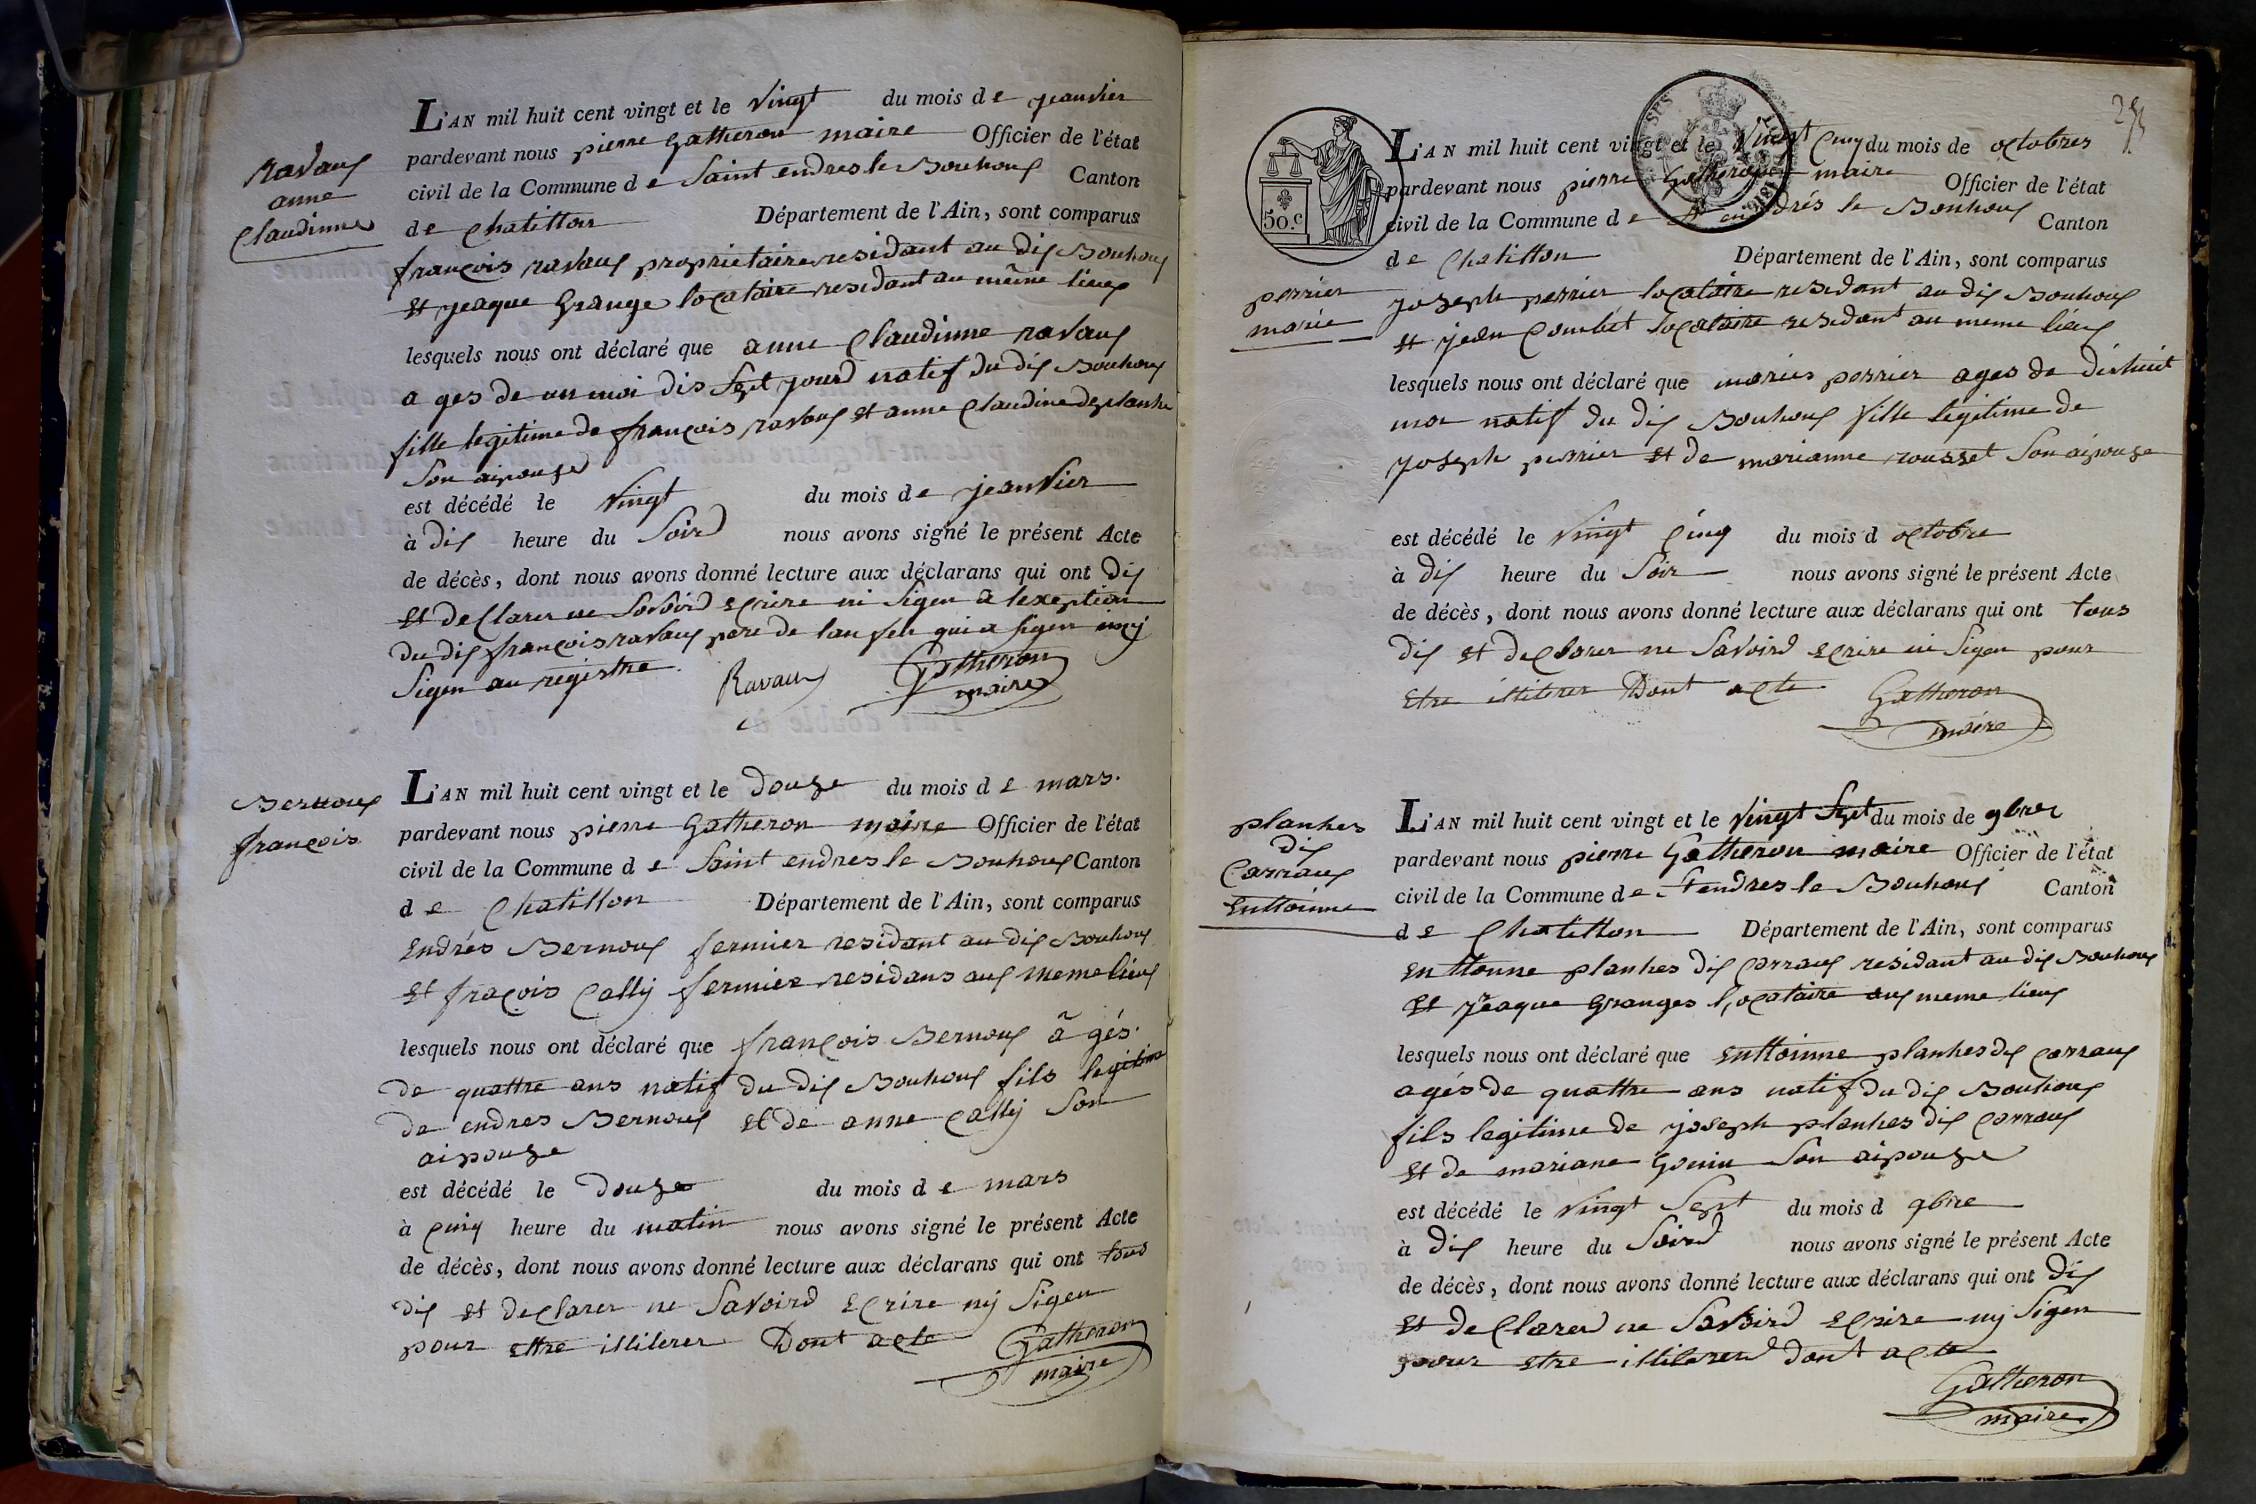 ravaux
anne
Claudinne
L'AN mil huit cent vingt et le vingt du mois de jeanvier
pardevant nous pierre Gatheron maire Officier de l'état
civil de la Commune de Saint endres le Bouhoux Canton
de Chatillon Département de l'Ain, sont comparus
françois ravaux proprietaire residant au dix Bouhoux
et jeaque Grange locataire residant au même lieux
lesquels nous ont déclaré que anne Claudinne ravaux
ages de un moi dis sept jourd natif du dix Bouhoux
fille legitime de françois ravaux et anne Claudine deplanhe
son aipouze
est décédé le vingt du mois de jeanvier
à dix heure du soird nous avons signé le présent Acte
de décès, dont nous avons donné lecture aux déclarans qui ont dix
et declarer ne savoird ecrire ni sigen a lexeption
du dix françois ravaux pere de lanfen qui a sigen
sigen au registre. Ravaux Gatheron
maire
Bernoux
françois
L'AN mil huit cent vingt et le douze du mois de mars.
pardevant nous pierre Gatheron maire Officier de l'état
civil de la Commune de Saint endres le Bouhoux Canton
de Chatillon Département de l'Ain, sont comparus
endrés Bernoux fermier residant au dix Bouhoux
et fraçois Cally fermier residans aux meme lieux
lesquels nous ont déclaré que françois Bernoux âgés
de quattre ans natif du dix Bouhoux fils legitime
de endres Bernoux et de anne Cally son
aipouze
est décédé le douze du mois de mars
à cinq heure du matin nous avons signé le présent Acte
de décès, dont nous avons donné lecture aux déclarans qui ont tous
dix et declarer ne savoird ecrire nij sigen
pour ettre illiterer Dont acte Gatheron
maire
50.c
L'AN mil huit cent vingt et le vingt cinq du mois de octobres
pardevant nous pierre Gatheron maire Officier de l'état
civil de la Commune de St endrés le Bouhoux Canton
de Chatillon Département de l'Ain, sont comparus
perrier
marie
joseph perrier locataire residant au dix Bouhoux
et jean Combet locataire residant au meme lieux
lesquels nous ont déclaré que maries perrier ages de dixhuit
moi natif du dix Bouhoux fille legitime de
joseph perrier et de marianne rousset son aipouze
est décédé le vingt cinq du mois d octobre
à dix heure du soir nous avons signé le présent Acte
de décès, dont nous avons donné lecture aux déclarans qui ont tous
dix et declarer ne savoird ecrire ni sigen pour
etre illiterer Dont acte Gatheron
maire
planhes
dix
Carraux
enttoinne
L'AN mil huit cent vingt et le vingt sept du mois de 9brer
pardevant nous pierre Gatheron maire Officier de l'état
civil de la Commune de St endres le Bouhoux Canton
de Chatillon Département de l'Ain, sont comparus
enttonne planhes dix Carraux residant au dix Bouhoux
et jeaque Granges locataire aux meme lieux
lesquels nous ont déclaré que enttoinne planhes dix carraux
agés de quattre ans natif du dix Bouhoux
fils legitime de joseph planhes dix carraux
et de mariane Gonin son aipouze
est décédé le vingt sept du mois d 9bre
à dix heure du soird nous avons signé le présent Acte
de décès, dont nous avons donné lecture aux déclarans qui ont dix
et declarer ne savoird ecrire nij sigen
pour etre illiterer dont acte
Gatheron
maire